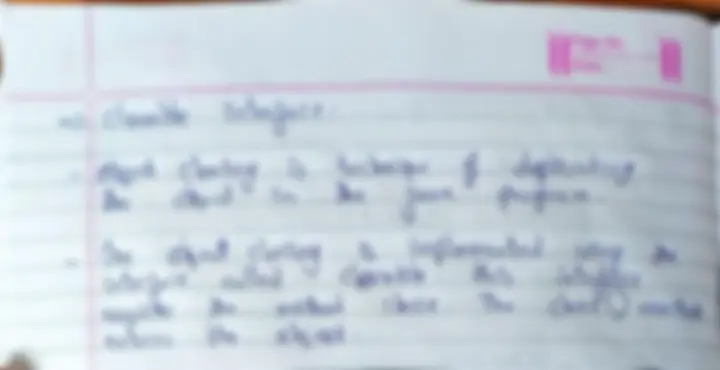 Cloneable Interface.
object cloning is technique of duplicating
the object in the java program.
The object cloning is implemented using the
interface called cloneable this interface
requires the method clone The clone() method
returns the object